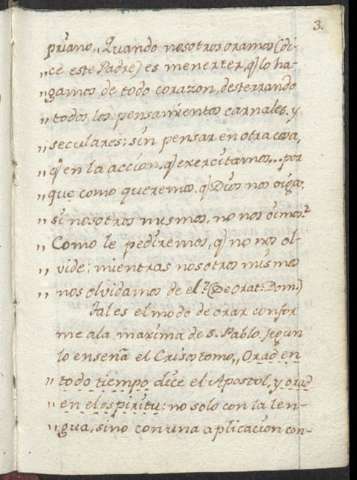 3.
priano,, Quando nosotros oramos (di-
,, ce este Padre) es menester, q̃ lo ha-
,, gamos de todo corazon, desterrando
,, todos los pensamientos carnales, y
,, seculares: sin pensar en otra cosa,
,, q̃ en la accion, q̃ exercitamos... por
,, que como queremos, q̃ Dios nos oiga,
,, si nosotros mismos no nos oimos?
,, Como le pediremos, q̃ no nos ol-
,, vide; mientras nosotros mismos
,, nos olvidamos de el? (De Orat: Dom)
Tal es el modo de orar confor
me a la maxima de S. Pablo, segun
lo enseña el Crisostomo,, Orad en
,, todo tiempo, dice el Apostol, y orad
,, en el espiritu: no solo con la len-
,, gua, sino con una aplicacion con-